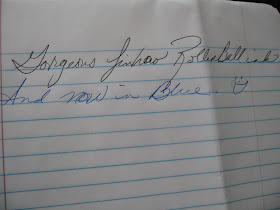 Gorgeous Jinhao RollerBall ink
And now in Blue.